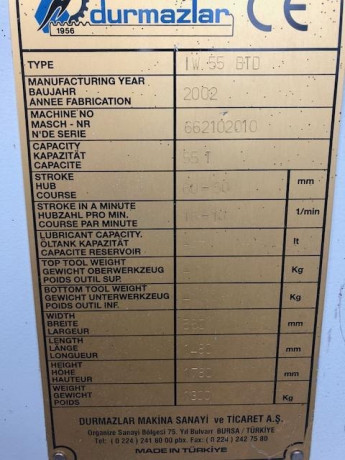 durmazlar
CE
1956
TYPE IW 55 BTD
MANUFACTURING YEAR
BAUJAHR 2002
ANNEE FABRICATION
MACHINE NO
MASCH - NR 662102010
N'DE SERIE
CAPACITY
KAPAZITÄT
CAPACITE
STROKE mm
HUB
COURSE
STROKE IN A MINUTE
HUBZAHL PRO MIN. 1/min
COURSE PAR MINUTE
LUBRICANT CAPACITY.
ÖLTANK KAPAZITÄT lt
CAPACITE RESERVOIR
TOP TOOL WEIGHT
GEWICHT OBERWERKZEUG Kg
POIDS OUTIL SUP.
BOTTOM TOOL WEIGHT
GEWICHT UNTERWERKZEUG Kg
POIDS OUTIL INF.
WIDTH
BREITE mm
LARGEUR
LENGTH
LÄNGE mm
LONGUEUR
HEIGHT
HÖHE 1780 mm
HAUTEUR
WEIGHT
GEWICHT Kg
POIDS
DURMAZLAR MAKİNA SANAYİ ve TİCARET A.Ş.
Organize Sanayi Bölgesi 75. Yıl Bulvarı BURSA / TÜRKİYE
Tel: ( 0 224 ) 241 60 00 pbx. Fax: ( 0 224 ) 242 75 80
MADE IN TÜRKİYE